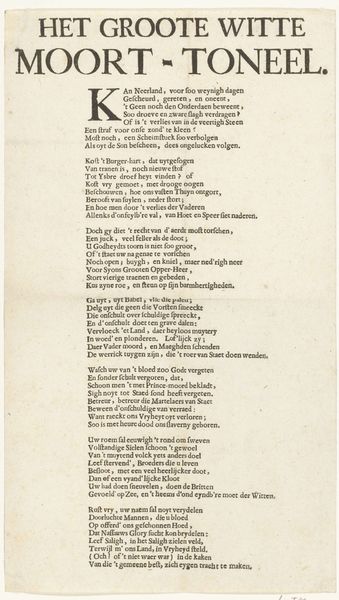 HET GROOTE WITTE
MOORT-TONEEL.
KAn Neerland, voor soo weynigh dagen
Gescheurd, gereten, en oneent,
't Geen noch den Onderdaen beweent,
Soo droeve en zware slagh verdragen?
Of is 't verlies van in de veertigh Steen
Een straf voor onse zond' te kleen?
Most noch, een Scheimstuck soo verbolgen
Als oyt de Son bescheen, dees ongelucken volgen.
Kost 't Burger-hart, dat uytgesogen
Van tranen is, noch nieuwe stof
Tot Ysbre droef heyt vinden? of
Kost vry gemoet, met drooge oogen
Beschouwen, hoe ons vasten Thuyn ontgort,
Berooft van suylen, neder stort;
En hoe men door 't verlies der Vaderen
Allenks d'onfeylb're val, van Hoet en Speer siet naderen.
Doch gy diet 't recht van d'aerdt most torschen,
Een juck, veel feller als de doot;
U Godheydts toorn is niet soo groot,
Of 't staet uw na genae te vorschen
Noch open; buygh, en kniel, maer ned'righ neer
Voor Syons Grooten Opper-Heer,
Stort vierige traenen en gebeden,
Kus zyne roe, en steun op sijn barmhertigheden.
Ga uyt, uyt Babel, vlie die palen;
Delg uyt die geen die Vorsten smeeckt
Die onschult over schuldige spreeckt,
En d'onschult doet ten grave dalen;
Vervloeck 'et Land, daer heyloos muytery
In woed' en plonderen, Lof'lijck zy;
Daer Vader moord, en Maeghden schenden
De werrick tuygen zijn, die 't roer van Staet doen wenden.
Wasch uw van 't bloed zoo Gods vergeten
En sonder schult vergoten, dat,
Schoon men 't met Prince-moord bekladt,
Sigh noyt tot Staed sond heeft vergeten.
Betreur, betreur die Martelaers van Staet
Beween d'onschuldige van verraed:
Want raeckt ons Vryheyt oyt verloren;
Soo is met heure dood ons slaverny geboren.
Uw roem sal eeuwigh 't rond om sweven
Volstandige Sielen schoon 't gewoel
Van 't muytend volck yets anders doel
Leef stervend', Broeders die u leven
Besloot, met een veel heerlijcker doot,
Dan of een vyand'lijcke Kloot
Uw had doen sneuvelen, doen de Britten
Gevoeld' op Zee, en 't heems d'ond eyndb're moet der Witten.
Rust vry, uw naem sal noyt verdylen
Doorluchte Mannen, die u bloed
Op offerd' ons geschonnen Hoed,
Dat Nassauws Glory sucht kon brydelen:
Leef Saligh, in het Saligh zielen veld,
Terwijl m' ons Land, in Vryheyd steld,
(Och! of 't niet waer war) in de kaken
Van die 't gemeene best, zich eygen tracht te maken.